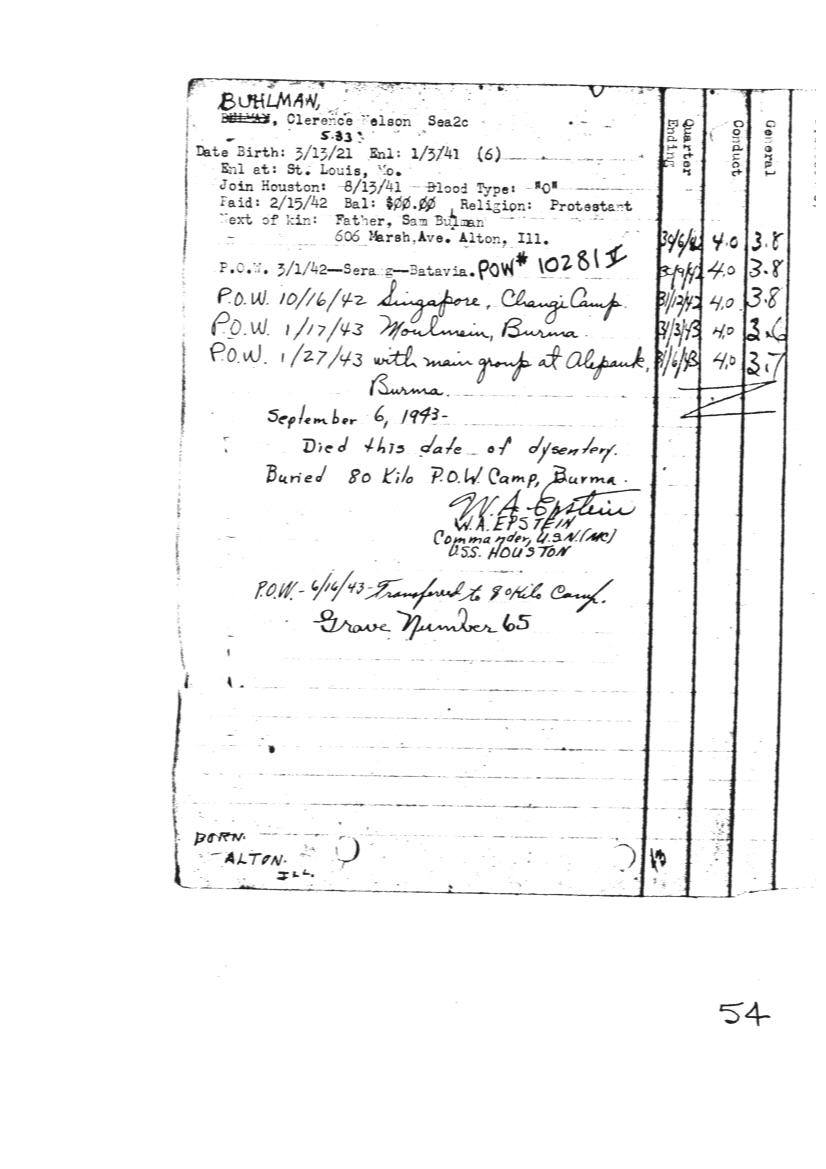 BUHLMAN,
BULMAN, Clerence Nelson Sea2c
5.33
Date Birth: 3/13/21 Enl: 1/3/41 (6)
Enl at: St. Louis, Mo.
Join Houston: 8/13/41 Blood Type: "O"
Paid: 2/15/42 Bal: $00.00 Religion: Protestant
Next of kin: Father, Sam Bulman
606 Marsh.Ave. Alton, Ill.
P.O.W. 3/1/42—Serang—Batavia. POW# 10281 V
P.O.W. 10/16/42 Singapore, Changi Camp.
P.O.W. 1/17/43 Moulmein, Burma.
P.O.W. 1/27/43 with main group at Alepauk,
Burma.
September 6, 1943-
Died this date of dysentery.
Buried 80 Kilo P.O.W. Camp, Burma.
W. A. Epstein
W.A. EPSTEIN
Commander, U.S.N.(MC)
U.S.S. HOUSTON
P.O.W. - 6/16/43 - Transferred to 80 Kilo Camp.
Grave Number 65
BORN.
ALTON.
ILL.
Quarter Ending Conduct General
30/6/42 4.0 3.8
30/9/42 4.0 3.8
31/12/42 4.0 3.8
31/3/43 4.0 3.6
31/6/43 4.0 3.7
54